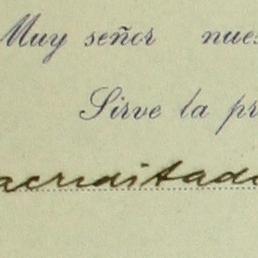 Muy señor nues
Sirve la pr
acreditado